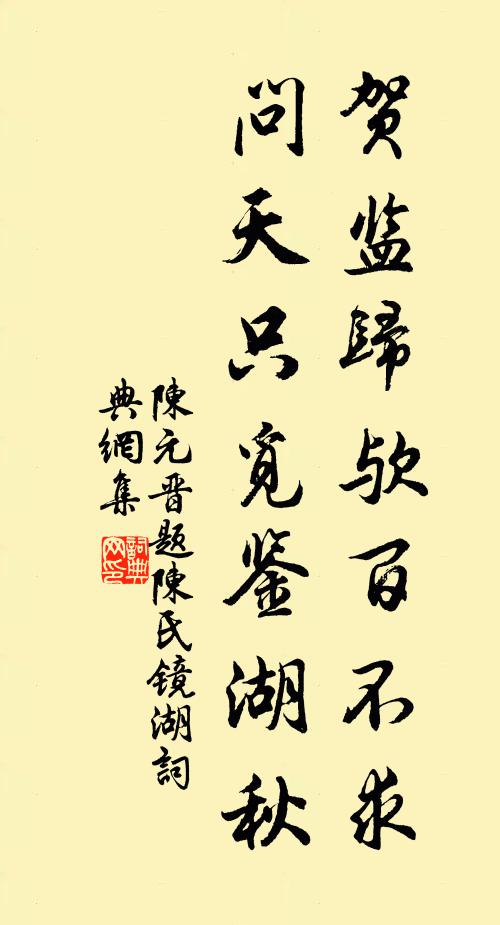 贺监歸欤百不求
问天只觅鉴湖秋
陳元晋题陳氏镜湖詞
典網集
詞典
网印